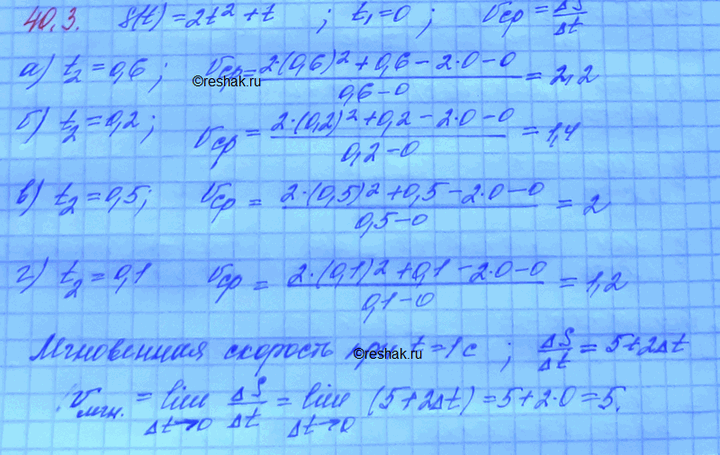 40.3. s(t) = 2t² + t ; t₁ = 0 ; Vср = ΔS/Δt
а) t₂ = 0,6 ; Vср = (2·(0,6)² + 0,6 − 2·0 − 0)/(0,6 − 0) = 2,2
©reshak.ru
б) t₂ = 0,2 ; Vср = (2·(0,2)² + 0,2 − 2·0 − 0)/(0,2 − 0) = 1,4
в) t₂ = 0,5; Vср = (2·(0,5)² + 0,5 − 2·0 − 0)/(0,5 − 0) = 2
г) t₂ = 0,1 Vср = (2·(0,1)² + 0,1 − 2·0 − 0)/(0,1 − 0) = 1,2
Мгновенная скорость при t = 1с ; ΔS/Δt = 5 + 2Δt
©reshak.ru
Vмгн. = lim Δt→0 ΔS/Δt = lim Δt→0 (5 + 2Δt) = 5 + 2·0 = 5.